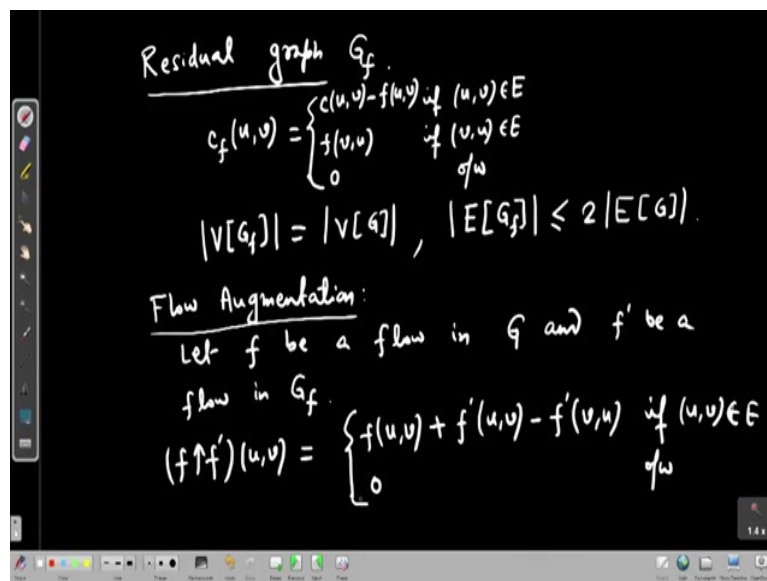 Residual graph G_f.
c_f(u,v) = { c(u,v)-f(u,v) if (u,v) ∈ E
f(v,u) if (v,u) ∈ E
0 o/w
|V[G_f]| = |V[G]| , |E[G_f]| ≤ 2|E[G]|.
Flow Augmentation:
Let f be a flow in G and f' be a
flow in G_f.
(f↑f')(u,v) = { f(u,v) + f'(u,v) - f'(v,u) if (u,v) ∈ E
0 o/w
1.4 x